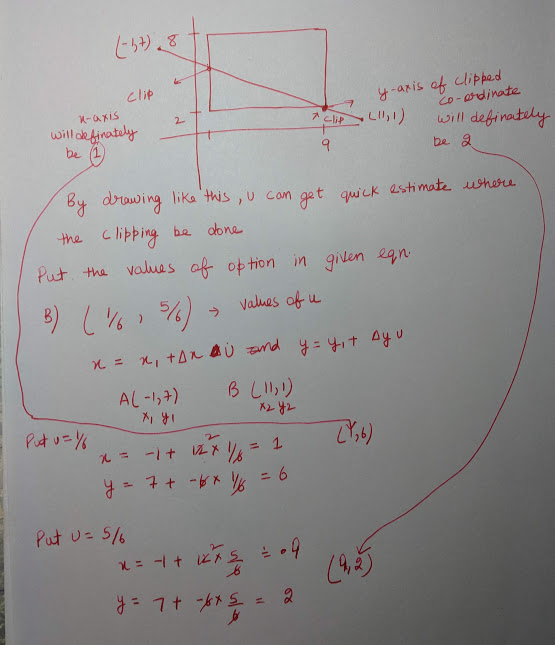 (-1,7) 8
clip
x-axis
will definately
be 1
2
x clip
(11,1)
9
y-axis of clipped
co-ordinate
will definately
be 2
By drawing like this, u can get quick estimate where
the clipping be done
Put the values of option in given eqn.
B) (1/6, 5/6) → values of u
x = x1 + Δx u and y = y1 + Δy u
A(-1,7) B (11,1)
x1 y1 x2 y2
Put u = 1/6
x = -1 + 12 2 × 1/6 = 1 (1,6)
y = 7 + -6 × 1/6 = 6
Put u = 5/6
x = -1 + 12 2 × 5/6 = 9 (9,2)
y = 7 + -6 × 5/6 = 2